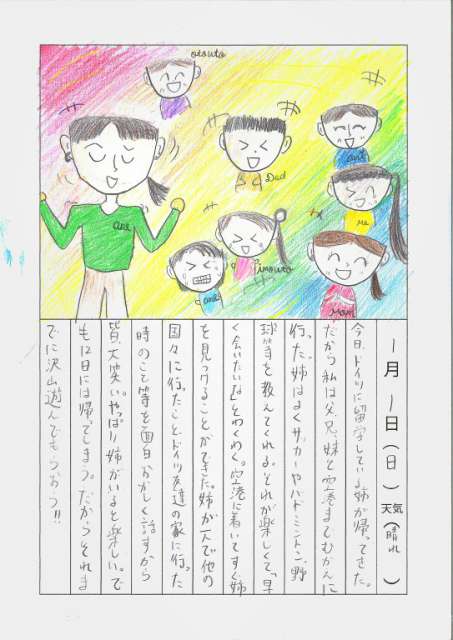 otouto
ane
Dad
ani
me
imouto
ane
Mom
一月一日(日)天気(晴れ)
今日ドイツに留学している姉が帰ってきた。
だから私は父、兄、妹と空港までむかえに
行った。姉はよくサッカーやバドミントン、野
球等を教えてくれる。それが楽しくて「早
く会いたい」とわくわく。空港に着いてすぐ姉
を見つけることができた。姉が一人で他の
国々に行ったこと、ドイツ友達の家に行った
時のこと等を面白おかしく話すから
皆、大笑い。やっぱり姉がいると楽しい。で
も12日には帰ってしまう。だからそれま
でに沢山遊んでもらおう!!